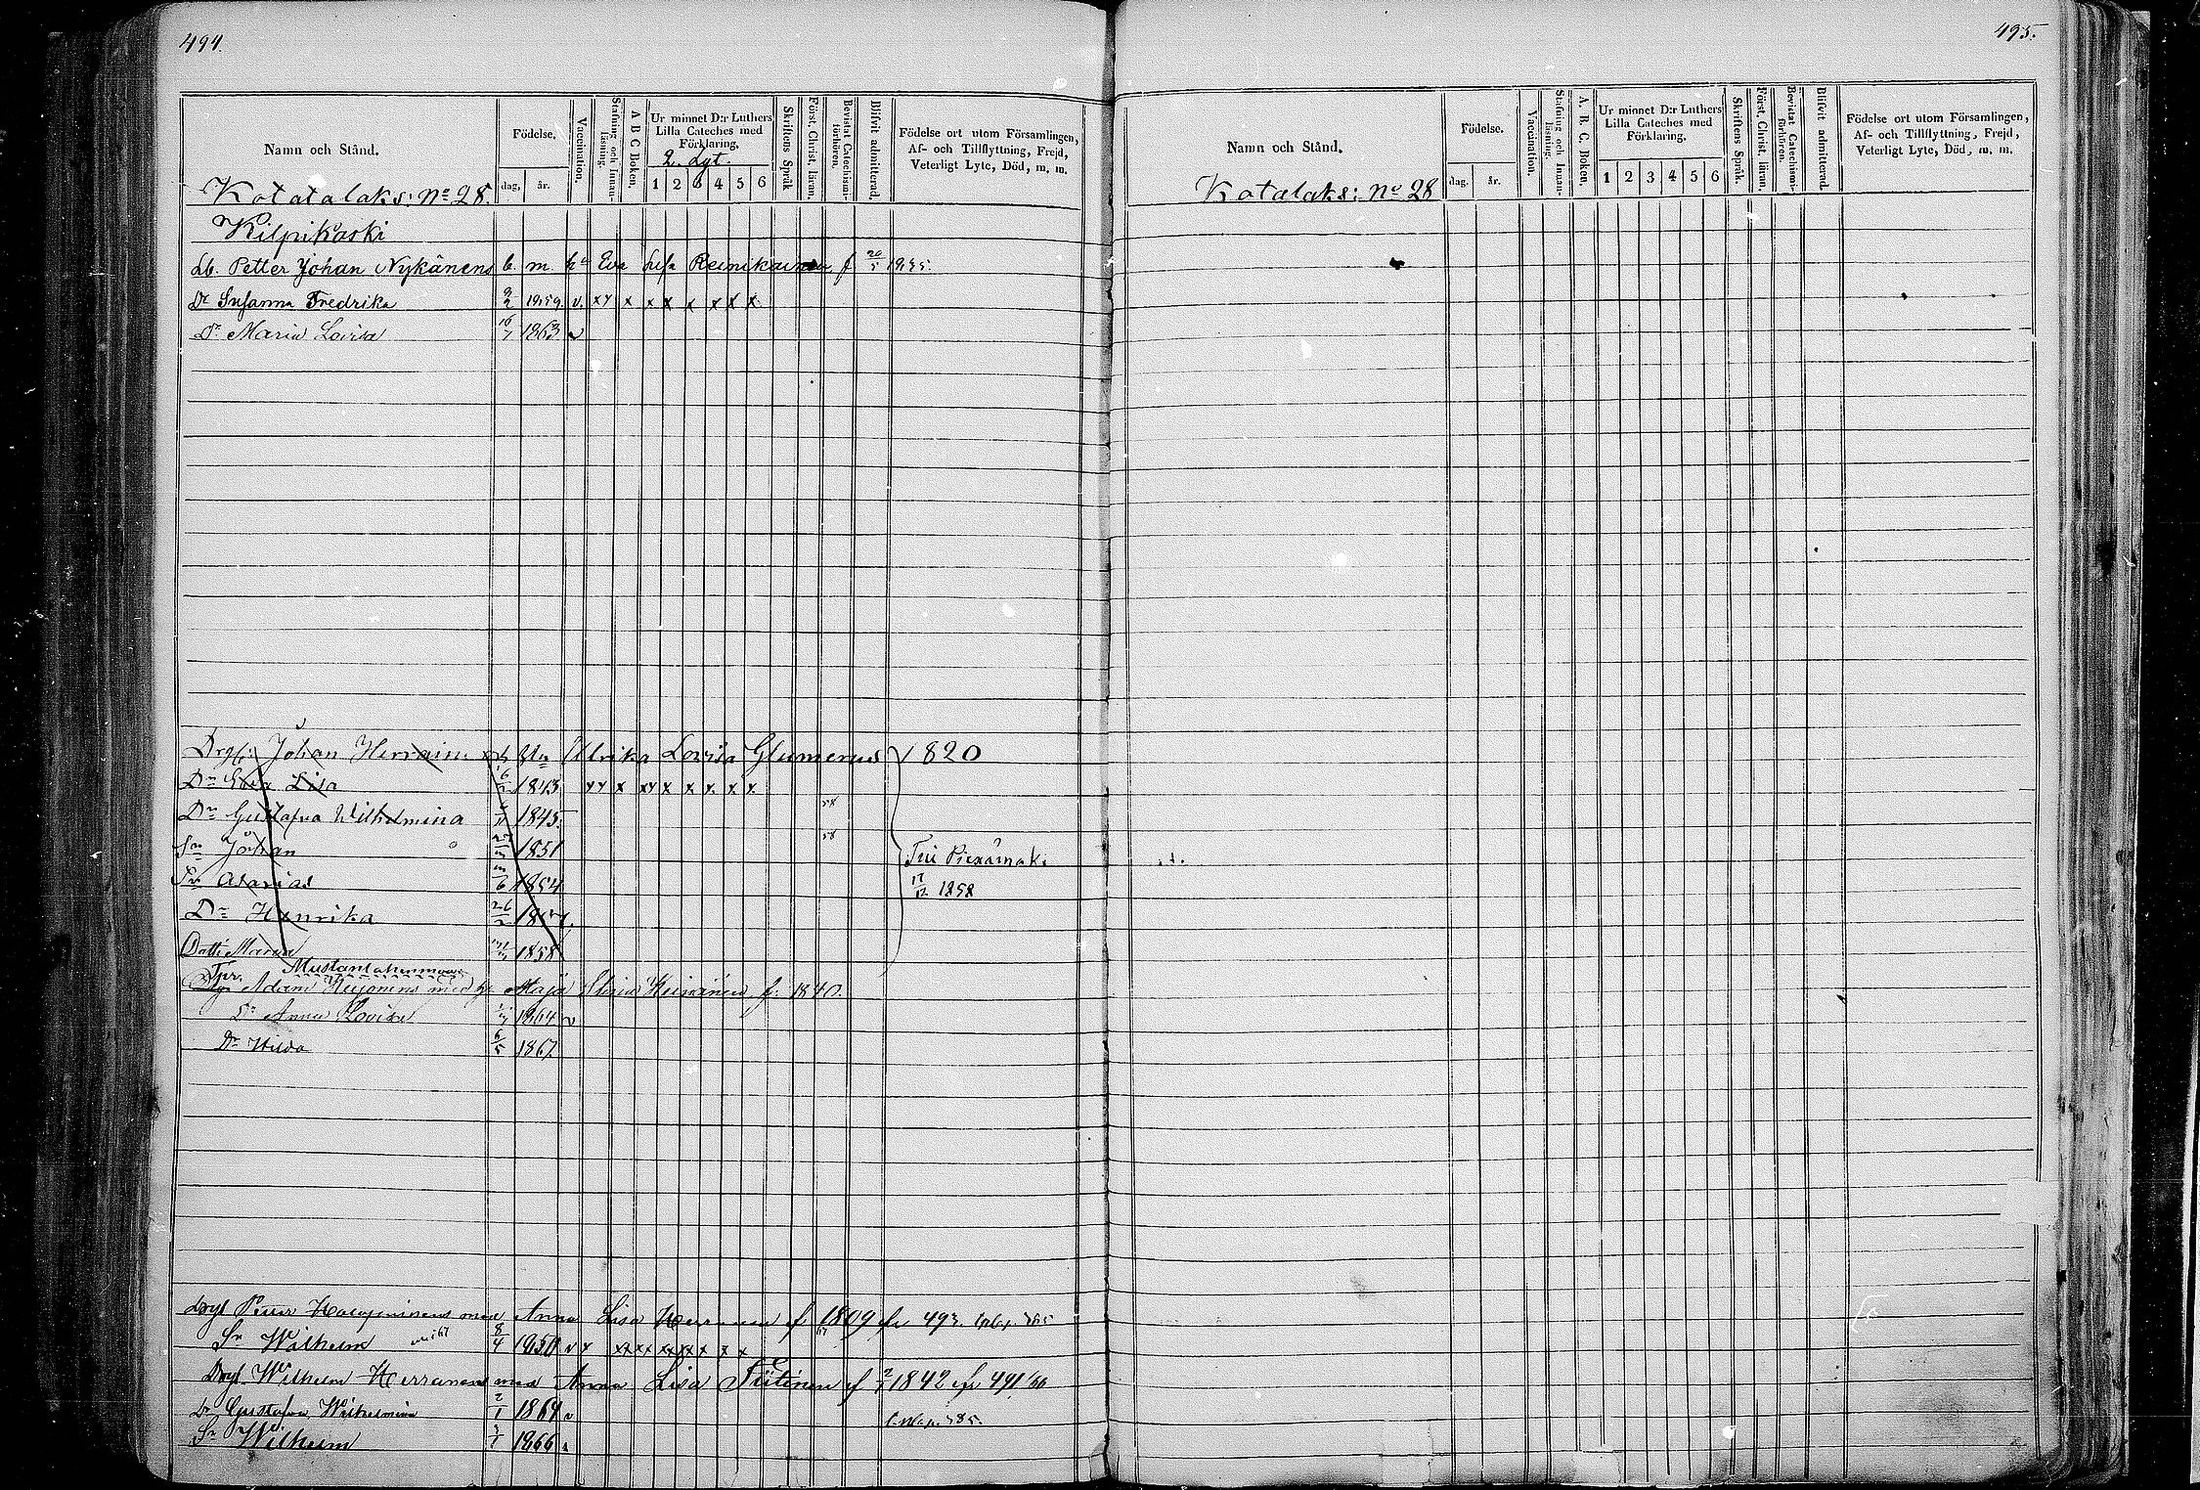 494.
Namn och Stånd.
Födelse.
dag, år.
Vaccination.
Stafning och Innan-läsning.
A B C Boken.
Ur minnet D:r Luthers
Lilla Cateches med
Förklaring.
1 2 3 4 5 6
Skriftens Språk
Först. Christ. läran.
Bevistat Catechismi-förhören.
Blifvit admitterad.
Födelse ort utom Församlingen,
Af- och Tillflyttning, Frejd,
Veterligt Lyte, Död, m. m.
Kotatalaks: No 28.
Kilpikoski
Lb. Petter Johan Nykänens b. m. Eva Lisa Reinikainen f 20/5 1835.
Dr Susanna Fredrika 1859. v. xy x x x x x x x
Dr Maria Lovisa 16/7 1863 v
Johan Ulrika Lovisa Glumerus 1820
Dr Eva Lisa 1843 xy x xy x x x x x
Dr Gustafva Wilhelmina 1845. 58
Sn Johan 1851 58
Till Piexämäki
Asarias 1854
17/12 1858
Dr Henrika 26/2
Dottr Maria 1858
Adam med Maja Stina f. 1840.
Dr Anna Lovisa 1864 v
Dr Hilda 6/5 1867
Anna Lisa Herranen f 1809 fr 493.
Sn Wilhelm 8/4 1850 v
Wilhelm Herranen med Anna Lisa Tiitinen f 1842 fr 491/66
Dr Gustafva Wilhelmina 2/1 1864 v
Sn Wilhelm 1866
495.
Namn och Stånd.
Födelse.
dag. år.
Vaccination.
Stafning och Innan-läsning.
A. B. C. Boken.
Ur minnet D:r Luthers
Lilla Cateches med
Förklaring.
1 2 3 4 5 6
Skriftens Språk.
Först. Christ. läran.
Bevistat Catechismi-förhören.
Blifvit admitterad.
Födelse ort utom Församlingen,
Af- och Tillflyttning, Frejd,
Veterligt Lyte, Död, m. m.
Kotalaks: No 28